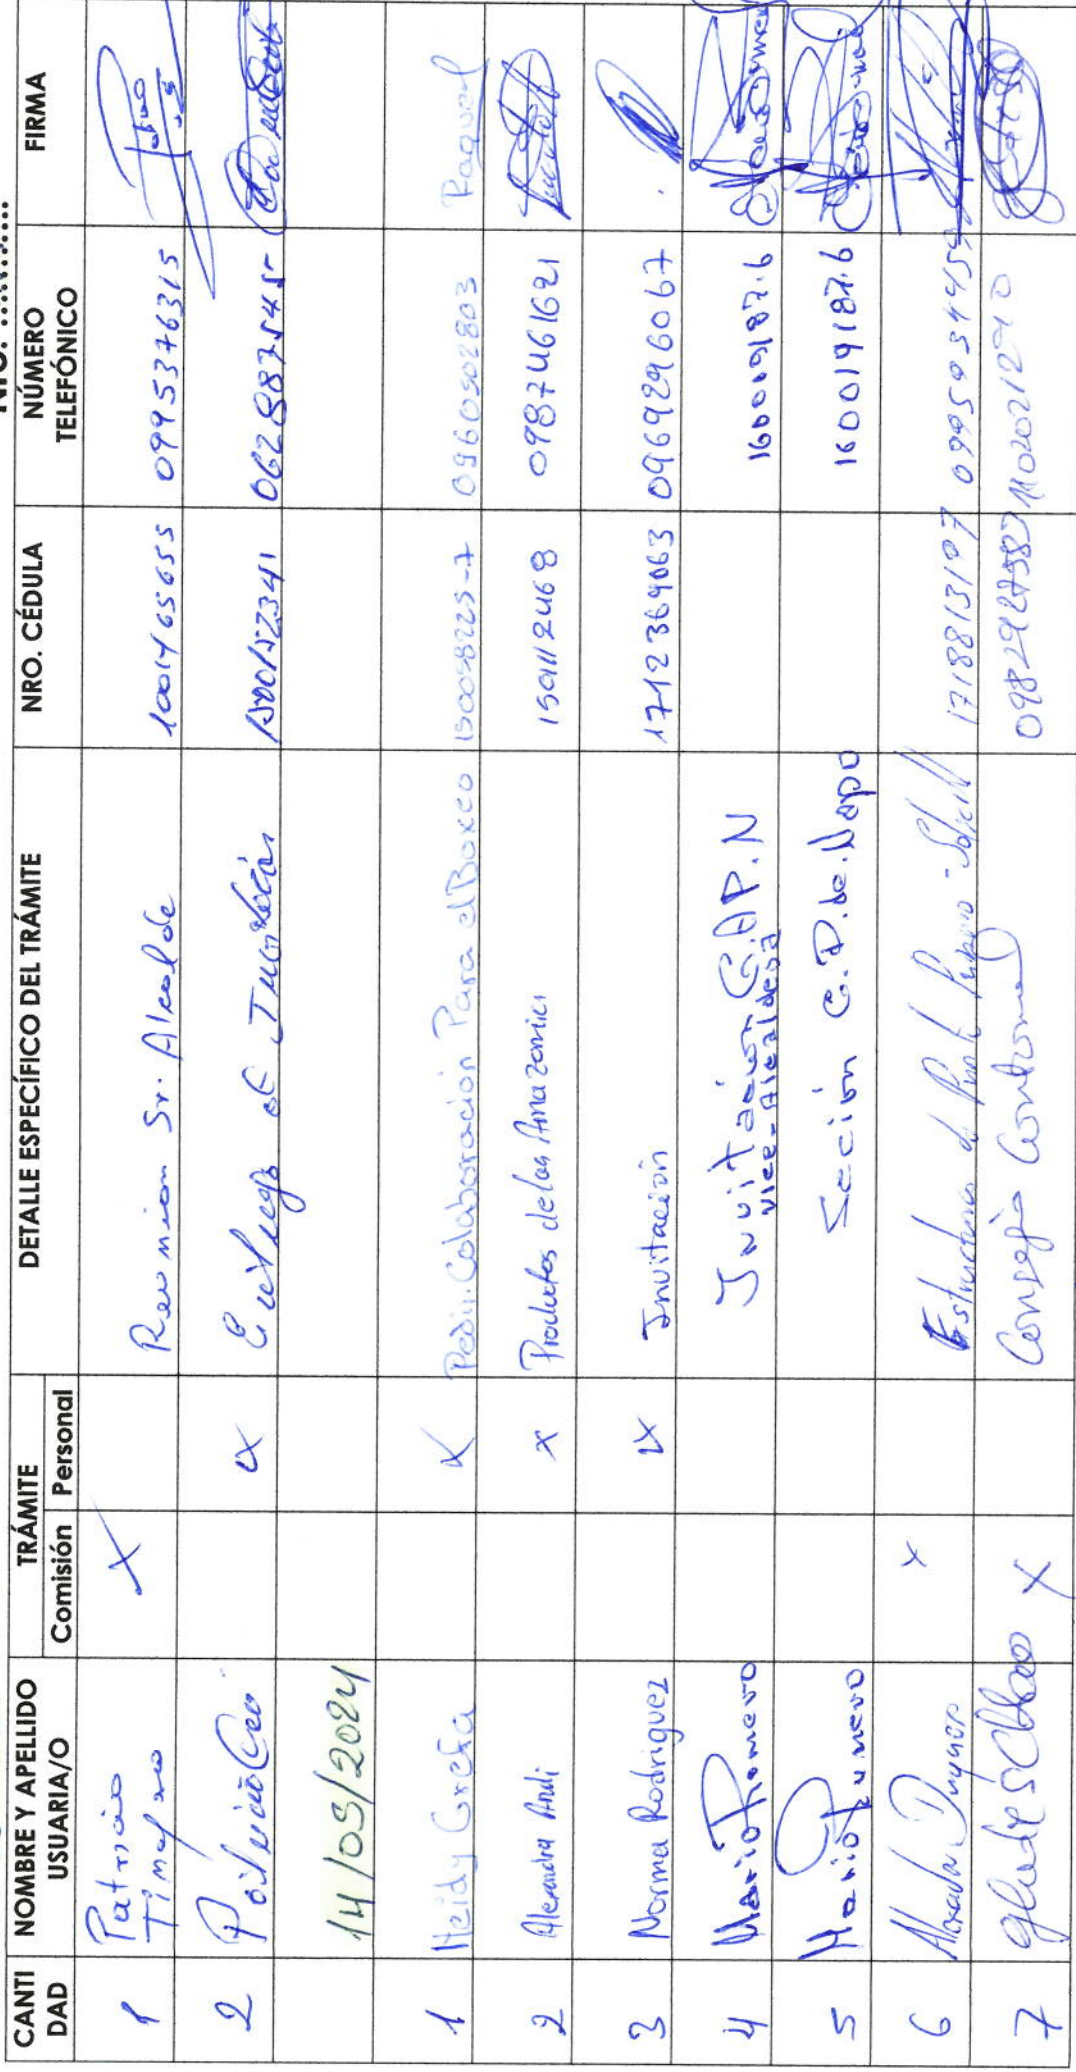 Nro. ..........
CANTI DAD NOMBRE Y APELLIDO USUARIA/O TRÁMITE Comisión Personal DETALLE ESPECÍFICO DEL TRÁMITE NRO. CÉDULA NÚMERO TELEFÓNICO FIRMA
1 Patricio X Reunion Sr. Alcalde 1001465655 0995376315
2 Patricio X Entrega de 062887545
14/03/2024
1 Heidy Grefa X Pedir Colaboración Para el Boxeo 150058225-7 0960502803 Raquel
2 Alexandra Andi x Productos de las Amazonia 1501112468 0987461621
3 Norma Rodriguez X Invitación 1712364063 0969296067
4 Mario Romero Invitación G.A.P.N Vice-Alcaldesa 160019187.6
5 Mario Romero Seción G.P.de.Napo 160019187.6
6 x Estructura de 1718813197
7 X Consejo Cantonal 0982927587